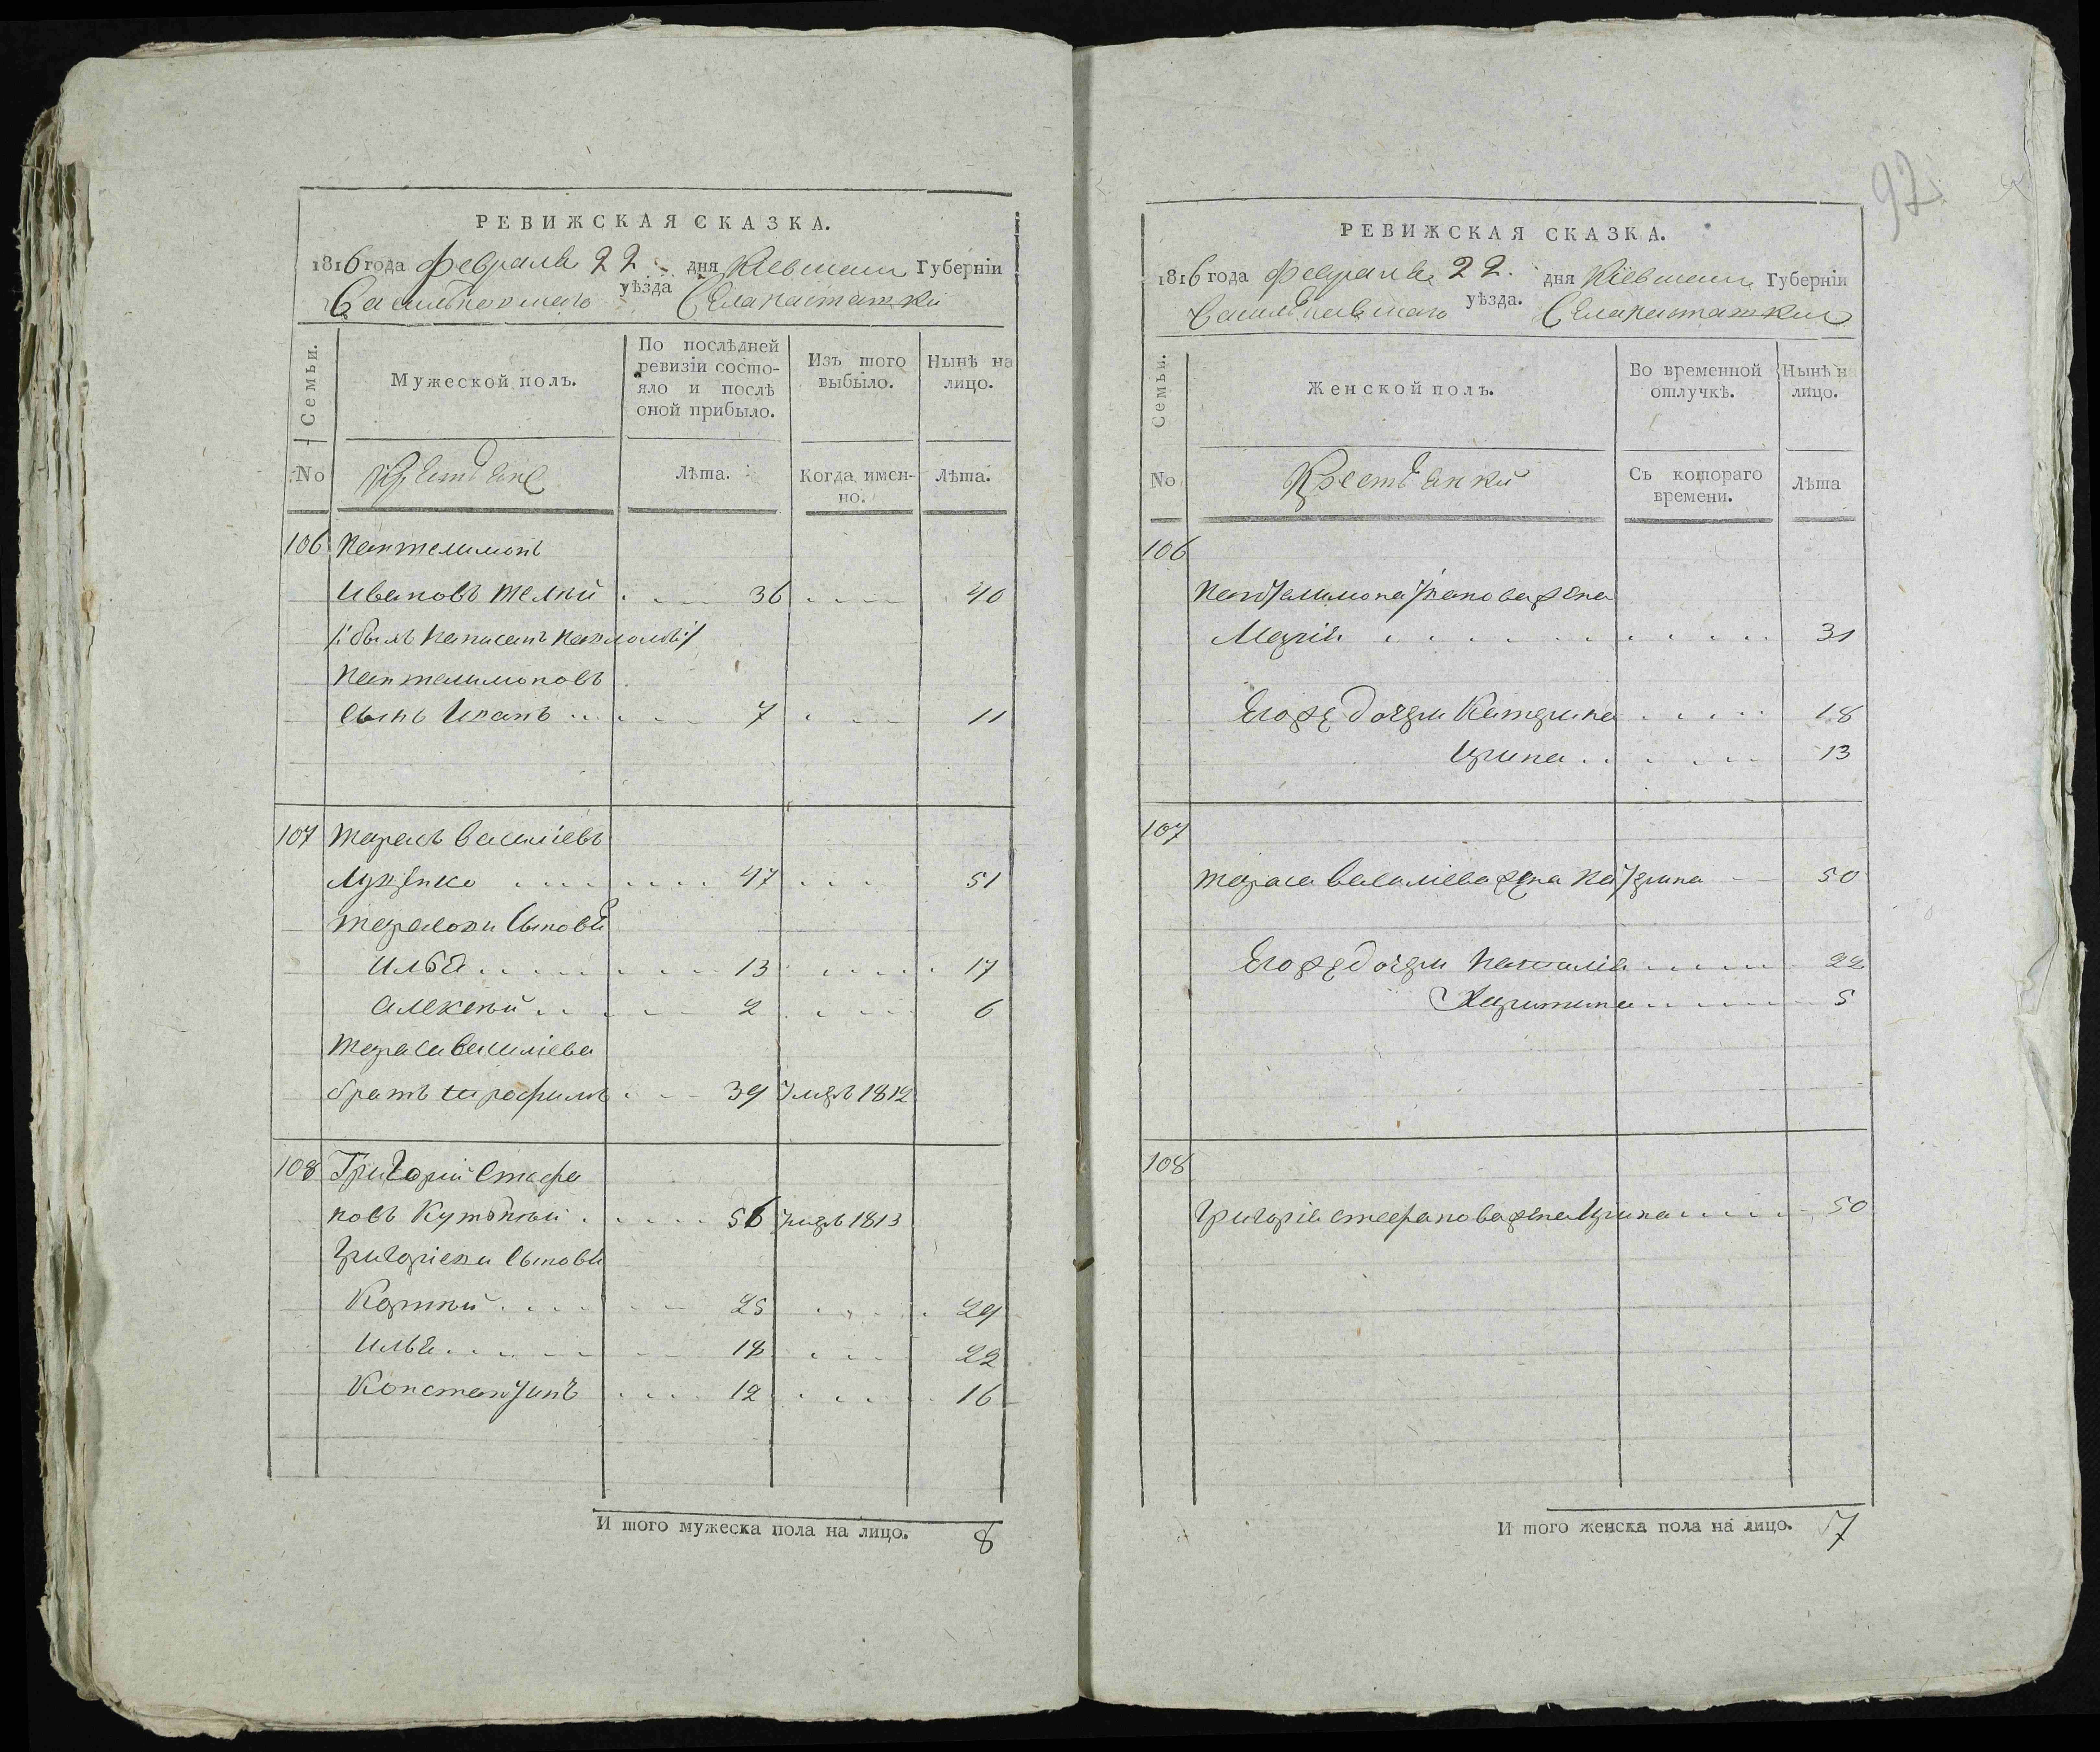 РЕВИЖСКАЯ СКАЗКА.
1816 года февраля 22 дня Кіевской Губерніи
Васильковскаго уѣзда Села
Семьи.
Мужеской полъ.
По послѣдней ревизіи состояло и послѣ оной прибыло.
Изъ того выбыло.
Нынѣ на лицо.
No
Крестьяне
Лѣта.
Когда имен-
но.
Лѣта.
106 Пантелимонъ
Ивановъ 36 40
/:былъ написанъ
Пантелимоновъ
сынъ Иванъ 7 11
107 Тарасъ Василіевъ
Луценко 47 51
Тарасови сыновя
Илья 13 17
Алексей 2 6
Тараса Василіева
братъ 39 умре 1812
108 Григорій Стефа
новъ 56 умре 1813
Григоріеви сыновя
Корній 25 29
Илья 18 22
Константинъ 12 16
И того мужеска пола на лицо. 8
92
РЕВИЖСКАЯ СКАЗКА.
1816 года февраля 22. дня Кіевской Губерніи
Васильковскаго уѣзда. Села
Семьи.
Женской полъ.
Во временной отлучкѣ.
Нынѣ н лицо.
No
Крестьянки
Съ котораго времени.
Лѣта
106
Пантелимона Иванова жена
Марія 31
Егоже дочери Катерина 18
Ирина 13
107
Тараса Василіева жена 50
Егоже дочери Наталія 22
Харитина 5
108
Григорія Стефанова жена Ирина 50
И того женска пола на лицо. 7